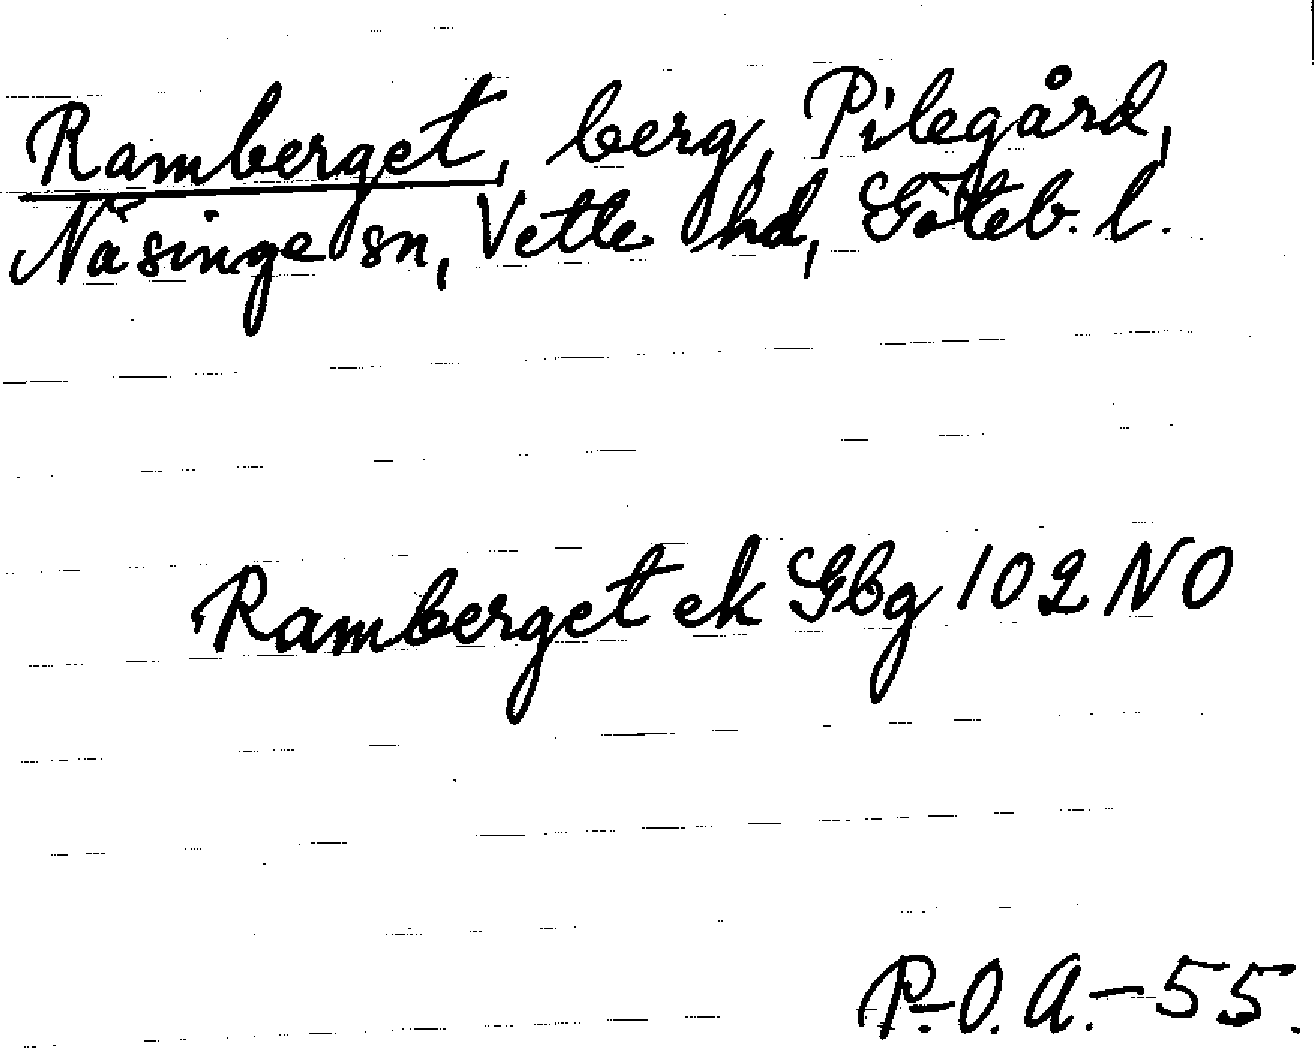 Ramberget, berg, Pilegård,
Näsinge sn, Vette hd, Göteb. l.
Ramberget ek Gbg 102 NO
P.-O. A. - 55.